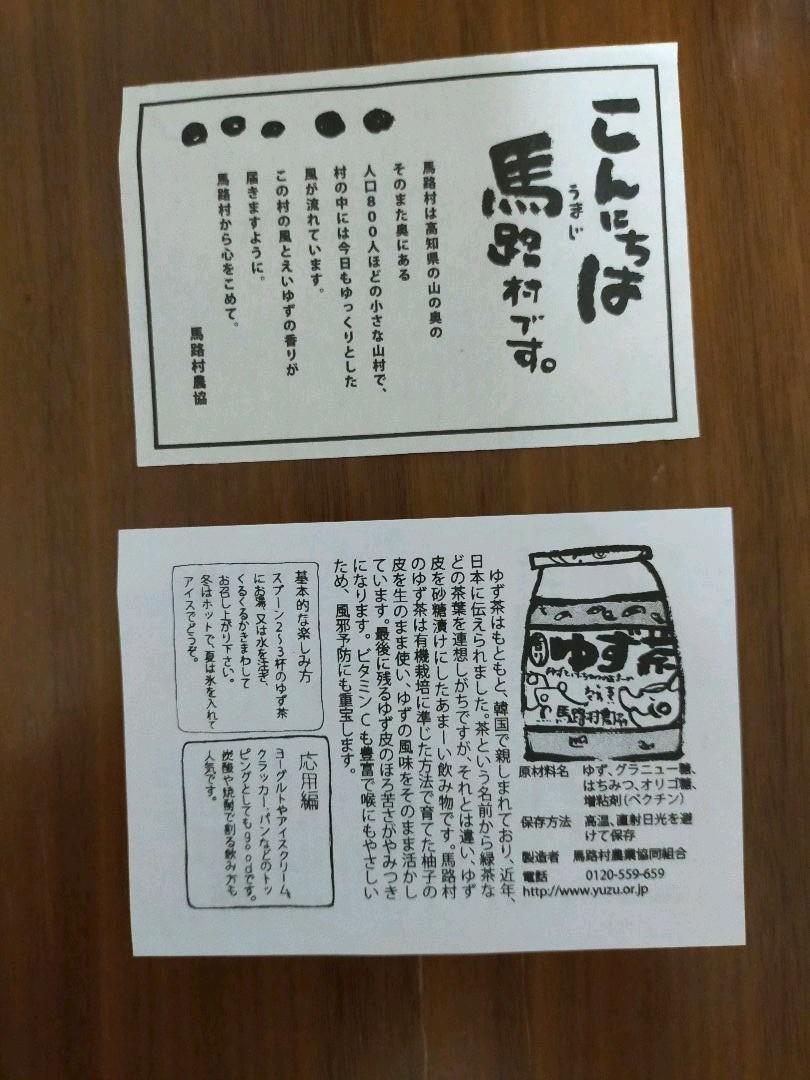 こんにちは
馬路村です。
うまじ
馬路村は高知県の山の奥の
そのまた奥にある
人口800人ほどの小さな山村で、
村の中には今日もゆっくりとした
風が流れています。
この村の風とえいゆずの香りが
届きますように。
馬路村から心をこめて。
馬路村農協
ゆず茶
馬路村農協
原材料名 ゆず、グラニュー糖、
はちみつ、オリゴ糖、
増粘剤(ペクチン)
保存方法 高温、直射日光を避
けて保存
製造者 馬路村農業協同組合
電話 0120-559-659
http://www.yuzu.or.jp
ゆず茶はもともと、韓国で親しまれており、近年、
日本に伝えられました。茶という名前から緑茶な
どの茶葉を連想しがちですが、それとは違い、ゆず
皮を砂糖漬けにしたあまーい飲み物です。馬路村
のゆず茶は有機栽培に準じた方法で育てた柚子の
皮を生のまま使い、ゆずの風味をそのまま活かし
ています。最後に残るゆず皮のほろ苦さがやみつき
になります。ビタミンCも豊富で喉にもやさしい
ため、風邪予防にも重宝します。
基本的な楽しみ方
スプーン2～3杯のゆず茶
にお湯、又は水を注ぎ、
くるくるかきまわして
お召し上がり下さい。
冬はホットで、夏は氷を入れて
アイスでどうぞ。
応用編
ヨーグルトやアイスクリーム、
クラッカー、パンなどのトッ
ピングとしてもgoodです。
炭酸や焼酎で割る飲み方も
人気です。